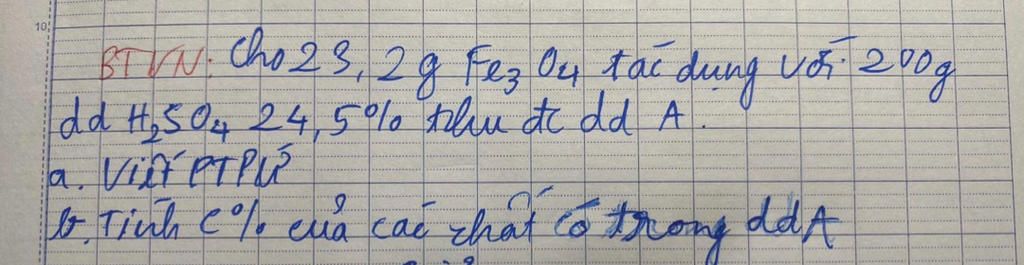 10
BTVN: Cho 23,2g Fe3O4 tác dụng với 200g
dd H2SO4 24,5% thu đc dd A.
a. Viết PTPƯ
b. Tính C% của các chất có trong ddA